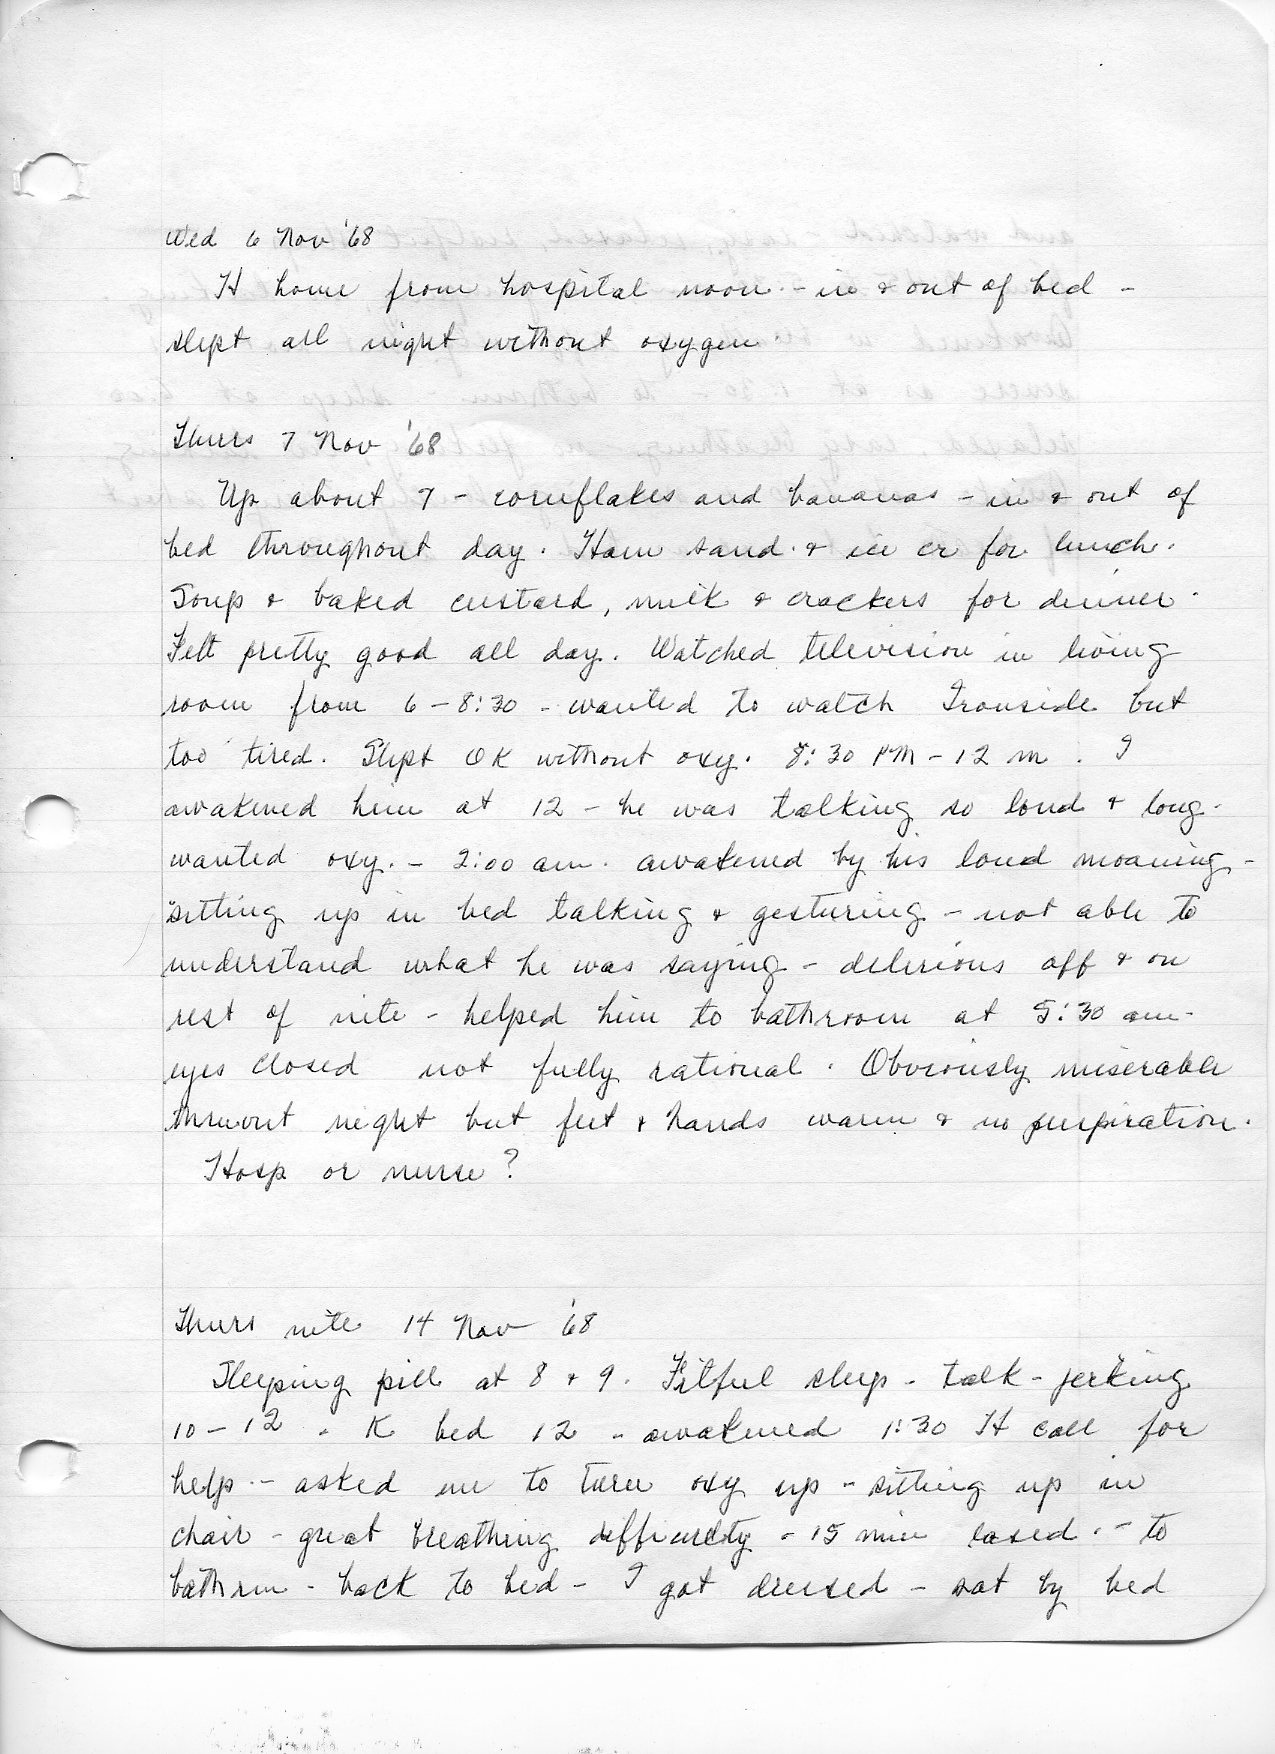 Wed 6 Nov '68
H home from hospital noon - in & out of bed -
slept all night without oxygen
Thurs 7 Nov '68
Up about 7 - cornflakes and bananas - in & out of
bed throughout day. Ham sand. & ice cr for lunch.
Soup & baked custard, milk & crackers for dinner.
Felt pretty good all day. Watched television in living
room from 6 - 8:30 - wanted to watch Ironside but
too tired. Slept OK without oxy. 8:30 PM - 12 m. I
awakened him at 12 - he was talking so loud & long.
wanted oxy. - 2:00 am. awakened by his loud moaning -
sitting up in bed talking & gesturing - not able to
understand what he was saying - delirious off & on
rest of nite - helped him to bathroom at 5:30 am -
eyes closed not fully rational. Obviously miserable
thruout night but feet & hands warm & no perspiration.
Hosp or nurse?
Thurs nite 14 Nov '68
Sleeping pill at 8 & 9. Fitful sleep - talk - jerking
10 - 12. K bed 12 - awakened 1:30 H call for
help - asked me to turn oxy up - sitting up in
chair - great breathing difficulty - 15 min eased. - to
bathrm - back to bed - I got dressed - sat by bed